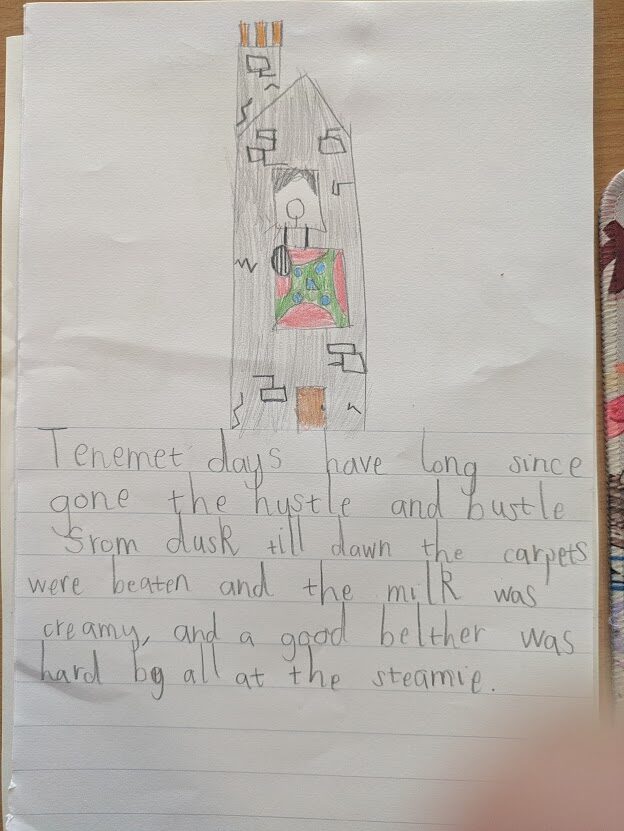 Tenemet days have long since
gone the hustle and bustle
from dusk till dawn the carpets
were beaten and the milk was
creamy, and a good belther was
hard by all at the steamie.